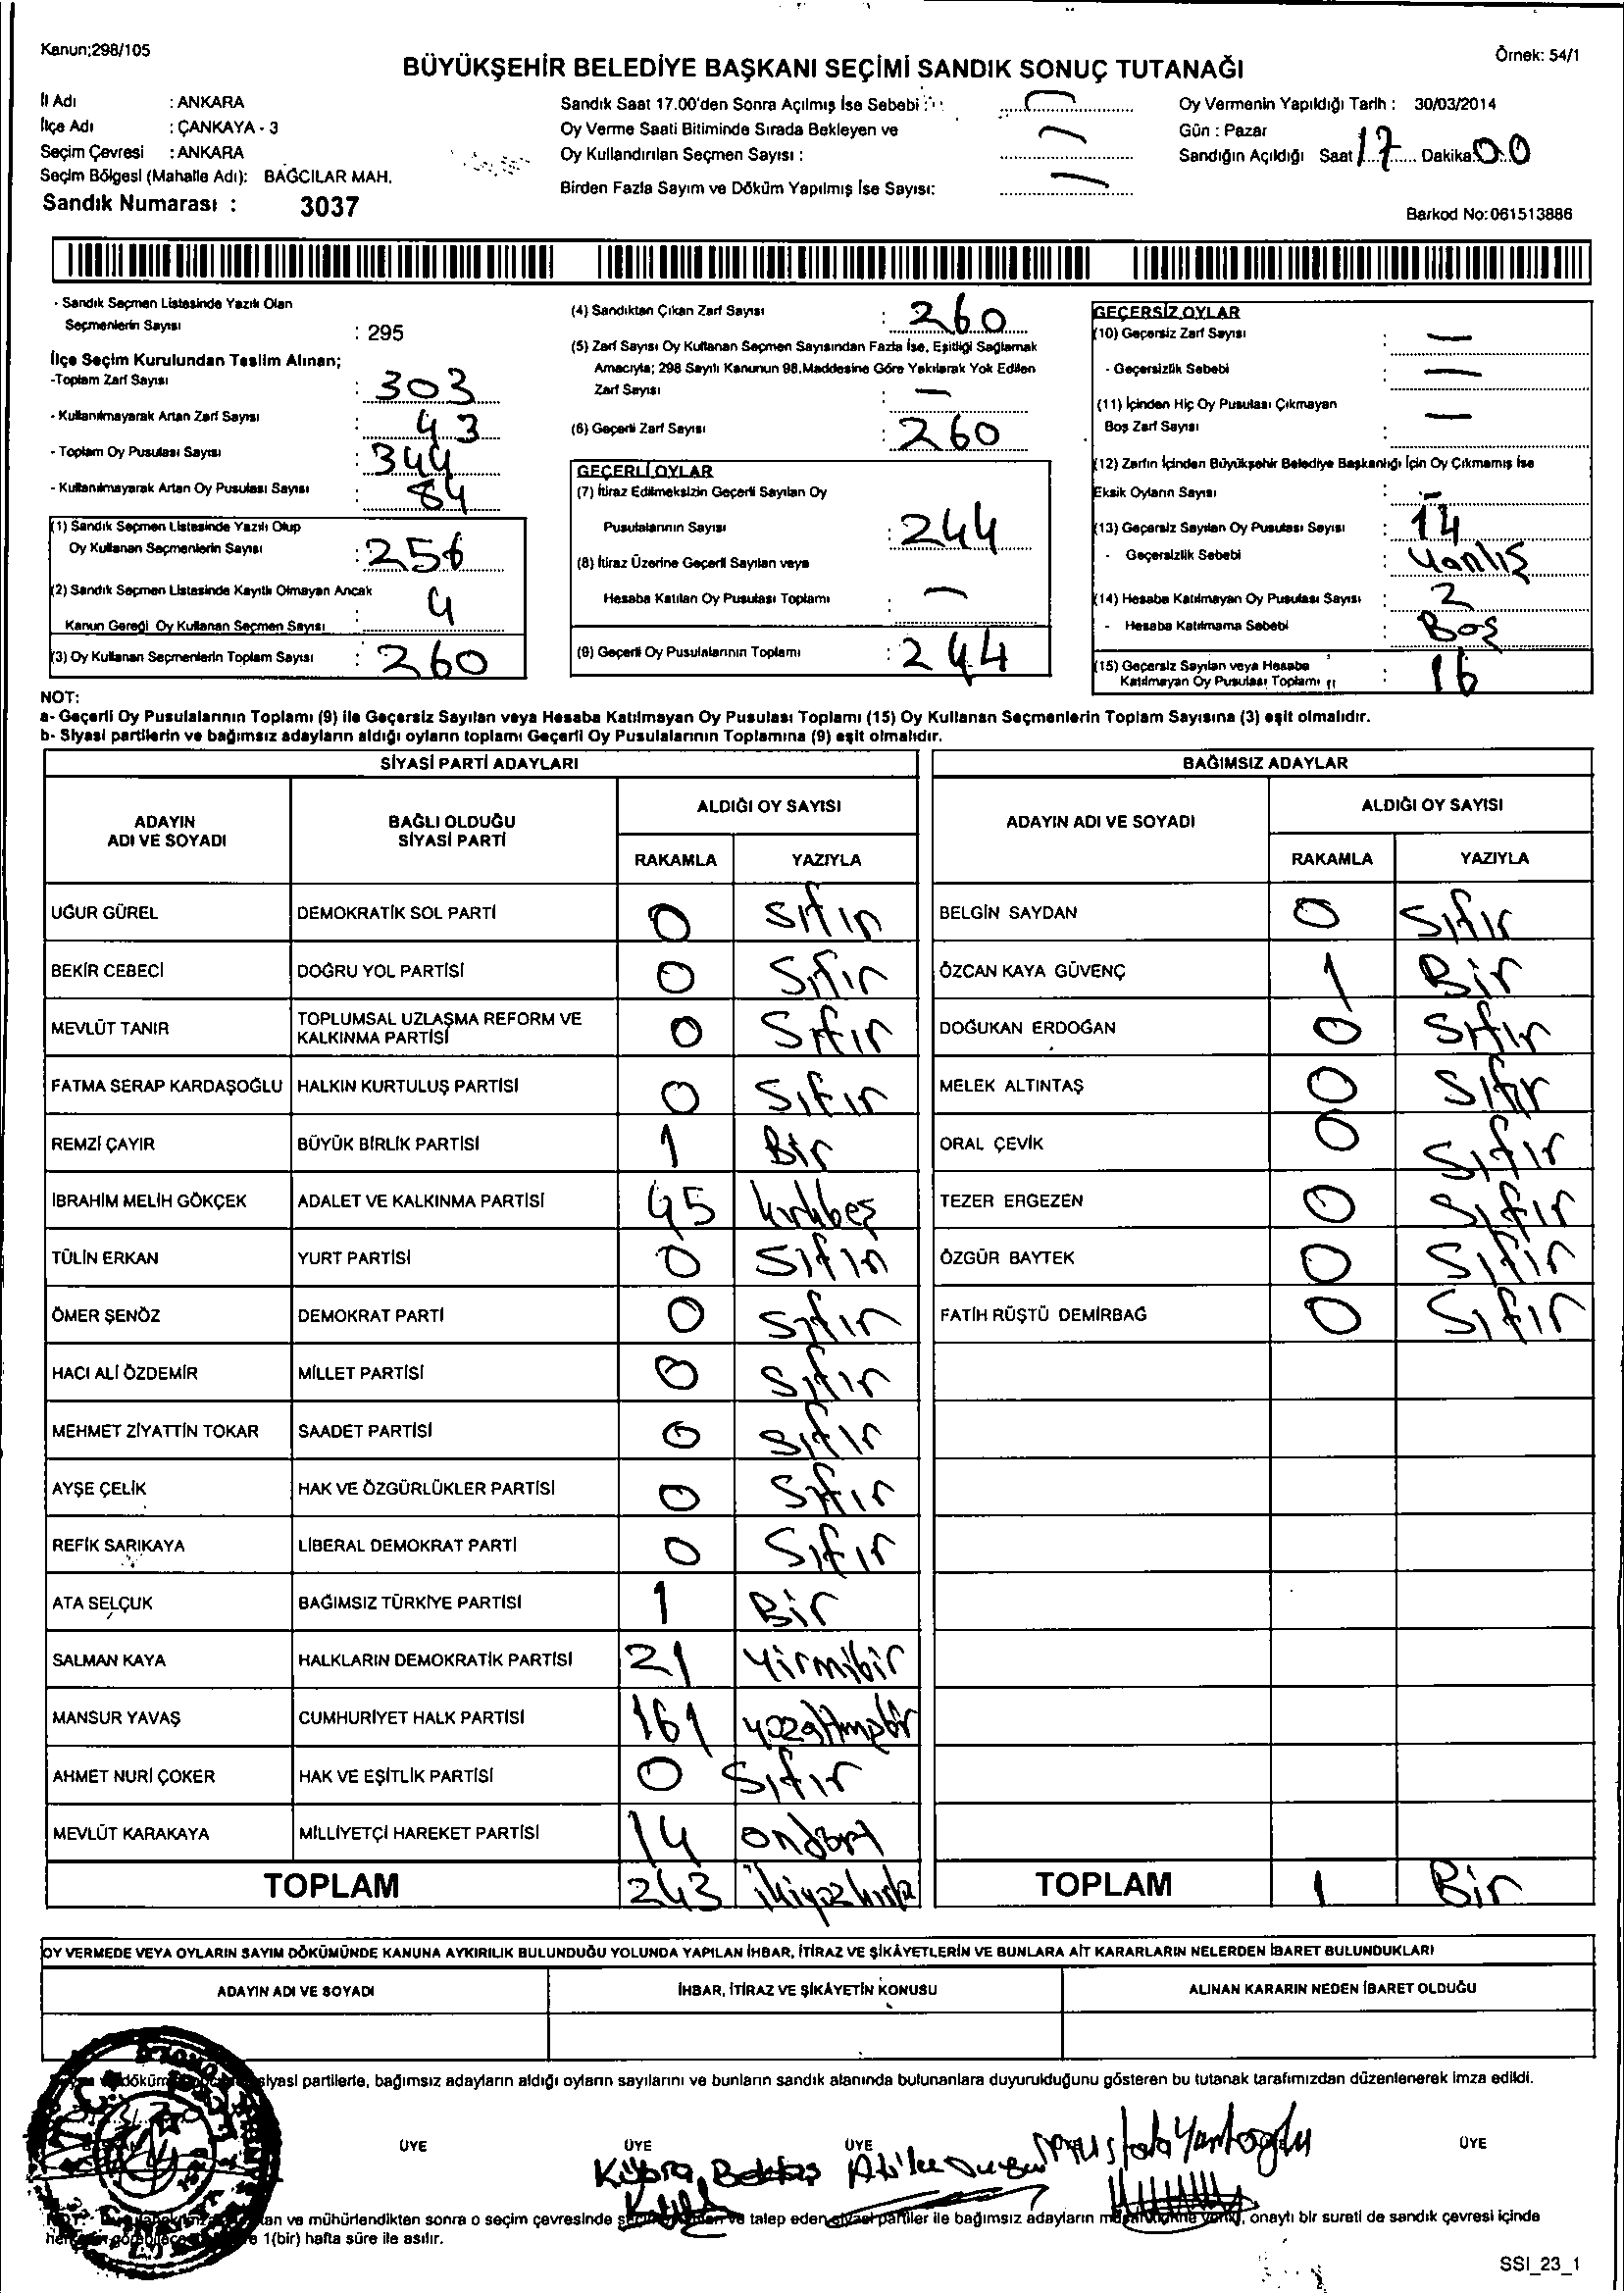 Kanun;298/105
Örnek: 54/1
BÜYÜKŞEHİR BELEDİYE BAŞKANI SEÇİMİ SANDIK SONUÇ TUTANAĞI
İl Adı : ANKARA
İlçe Adı : ÇANKAYA - 3
Seçim Çevresi : ANKARA
Seçim Bölgesi (Mahalle Adı): BAĞCILAR MAH.
Sandık Numarası : 3037
Sandık Saat 17.00'den Sonra Açılmış İse Sebebi : —
Oy Verme Saati Bitiminde Sırada Bekleyen ve
Oy Kullandırılan Seçmen Sayısı : —
Birden Fazla Sayım ve Döküm Yapılmış İse Sayısı: —
Oy Vermenin Yapıldığı Tarih : 30/03/2014
Gün : Pazar
Sandığın Açıldığı Saat 17 Dakika 00
Barkod No:061513886
- Sandık Seçmen Listesinde Yazılı Olan
Seçmenlerin Sayısı : 295
İlçe Seçim Kurulundan Teslim Alınan;
-Toplam Zarf Sayısı : 303
- Kullanılmayarak Artan Zarf Sayısı : 43
- Toplam Oy Pusulası Sayısı : 344
- Kullanılmayarak Artan Oy Pusulası Sayısı : 84
(1) Sandık Seçmen Listesinde Yazılı Olup
Oy Kullanan Seçmenlerin Sayısı : 256
(2) Sandık Seçmen Listesinde Kayıtlı Olmayan Ancak
Kanun Gereği Oy Kullanan Seçmen Sayısı : 4
(3) Oy Kullanan Seçmenlerin Toplam Sayısı : 260
(4) Sandıktan Çıkan Zarf Sayısı : 260
(5) Zarf Sayısı Oy Kullanan Seçmen Sayısından Fazla İse, Eşitliği Sağlamak
Amacıyla; 298 Sayılı Kanunun 98.Maddesine Göre Yakılarak Yok Edilen
Zarf Sayısı : —
(6) Geçerli Zarf Sayısı : 260
GEÇERLİ OYLAR
(7) İtiraz Edilmeksizin Geçerli Sayılan Oy
Pusulalarının Sayısı : 244
(8) İtiraz Üzerine Geçerli Sayılan veya
Hesaba Katılan Oy Pusulası Toplamı : —
(9) Geçerli Oy Pusulalarının Toplamı : 244
GEÇERSİZ OYLAR
(10) Geçersiz Zarf Sayısı : —
- Geçersizlik Sebebi : —
(11) İçinden Hiç Oy Pusulası Çıkmayan
Boş Zarf Sayısı : —
(12) Zarfın İçinden Büyükşehir Belediye Başkanlığı İçin Oy Çıkmamış İse
Eksik Oyların Sayısı : —
(13) Geçersiz Sayılan Oy Pusulası Sayısı : 14
- Geçersizlik Sebebi : Yanlış
(14) Hesaba Katılmayan Oy Pusulası Sayısı : 2
- Hesaba Katılmama Sebebi : Boş
(15) Geçersiz Sayılan veya Hesaba
Katılmayan Oy Pusulası Toplamı : 16
NOT:
a- Geçerli Oy Pusulalarının Toplamı (9) ile Geçersiz Sayılan veya Hesaba Katılmayan Oy Pusulası Toplamı (15) Oy Kullanan Seçmenlerin Toplam Sayısına (3) eşit olmalıdır.
b- Siyasi partilerin ve bağımsız adayların aldığı oyların toplamı Geçerli Oy Pusulalarının Toplamına (9) eşit olmalıdır.
SİYASİ PARTİ ADAYLARI
ADAYIN ADI VE SOYADI
BAĞLI OLDUĞU SİYASİ PARTİ
ALDIĞI OY SAYISI
RAKAMLA YAZIYLA
UĞUR GÜREL DEMOKRATİK SOL PARTİ 0 Sıfır
BEKİR CEBECİ DOĞRU YOL PARTİSİ 0 Sıfır
MEVLÜT TANIR TOPLUMSAL UZLAŞMA REFORM VE KALKINMA PARTİSİ 0 Sıfır
FATMA SERAP KARDAŞOĞLU HALKIN KURTULUŞ PARTİSİ 0 Sıfır
REMZİ ÇAYIR BÜYÜK BİRLİK PARTİSİ 1 Bir
İBRAHİM MELİH GÖKÇEK ADALET VE KALKINMA PARTİSİ 45 kırkbeş
TÜLİN ERKAN YURT PARTİSİ 0 Sıfır
ÖMER ŞENÖZ DEMOKRAT PARTİ 0 Sıfır
HACI ALİ ÖZDEMİR MİLLET PARTİSİ 0 Sıfır
MEHMET ZİYATTİN TOKAR SAADET PARTİSİ 0 Sıfır
AYŞE ÇELİK HAK VE ÖZGÜRLÜKLER PARTİSİ 0 Sıfır
REFİK SARIKAYA LİBERAL DEMOKRAT PARTİ 0 Sıfır
ATA SELÇUK BAĞIMSIZ TÜRKİYE PARTİSİ 1 Bir
SALMAN KAYA HALKLARIN DEMOKRATİK PARTİSİ 21 Yirmibir
MANSUR YAVAŞ CUMHURİYET HALK PARTİSİ 161 yüzaltmışbir
AHMET NURİ ÇOKER HAK VE EŞİTLİK PARTİSİ 0 Sıfır
MEVLÜT KARAKAYA MİLLİYETÇİ HAREKET PARTİSİ 14 ondört
TOPLAM 243
BAĞIMSIZ ADAYLAR
ADAYIN ADI VE SOYADI
ALDIĞI OY SAYISI
RAKAMLA YAZIYLA
BELGİN SAYDAN 0 Sıfır
ÖZCAN KAYA GÜVENÇ 1 Bir
DOĞUKAN ERDOĞAN 0 Sıfır
MELEK ALTINTAŞ 0 Sıfır
ORAL ÇEVİK 0 Sıfır
TEZER ERGEZEN 0 Sıfır
ÖZGÜR BAYTEK 0 Sıfır
FATİH RÜŞTÜ DEMİRBAĞ 0 Sıfır
TOPLAM 1 Bir
OY VERMEDE VEYA OYLARIN SAYIM DÖKÜMÜNDE KANUNA AYKIRILIK BULUNDUĞU YOLUNDA YAPILAN İHBAR, İTİRAZ VE ŞİKÂYETLERİN VE BUNLARA AİT KARARLARIN NELERDEN İBARET BULUNDUKLARI
ADAYIN ADI VE SOYADI İHBAR, İTİRAZ VE ŞİKÂYETİN KONUSU ALINAN KARARIN NEDEN İBARET OLDUĞU
siyasi partilerle, bağımsız adayların aldığı oyların sayılarını ve bunların sandık alanında bulunanlara duyurulduğunu gösteren bu tutanak tarafımızdan düzenlenerek imza edildi.
ÜYE ÜYE ÜYE ÜYE
Kübra Bektaş Mustafa
ve mühürlendikten sonra o seçim çevresinde talep eden siyasi partiler ile bağımsız adayların onaylı bir sureti de sandık çevresi içinde
1(bir) hafta süre ile asılır.
SSI_23_1